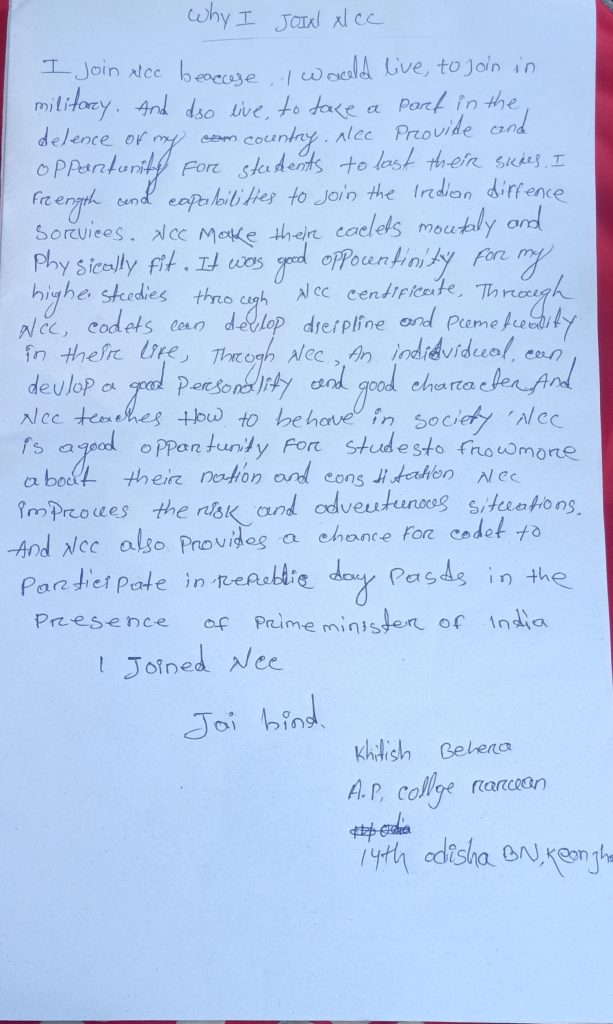 Why I JOIN NCC
I Join Ncc beacuse, I would live, to join in
military. And dso live, to take a part in the
delence of my com country. Ncc Provide and
opportunity For students to last their skies, I
Frength and eapabilities to Join the Indian diffence
Sorvices. Ncc Make their cadets moutaly and
Phy sically fit. It was good oppountinity For my
higher studies through Ncc certificate. Through
Ncc, codets can devlop dicipline and Pumetuality
in their Life, Throgh Ncc, An individual, can
devlop a good Personality and good character And
Ncc teaches How to behave in society 'Ncc
is agood opportunity For studesto fnowmore
about their nation and cons titation Ncc
improues the risk and adventurous situations.
And Ncc also Provides a chance For codet to
Partici pate in republic day Pasds in the
Presence of Prime minister of India
I Joined Ncc
Jai hind.
Khitish Behera
A.P. collge
14th odisha BN,